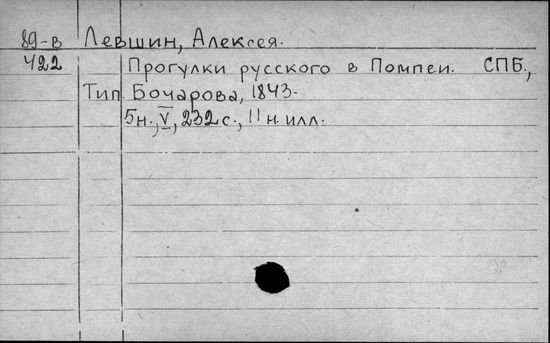 89-в Левшин, Алексея.
422 Прогулки русского в Помпеи. СПБ.,
Тип. Бочарова, 1843-
5н., V, 232 с., 11 н. илл.